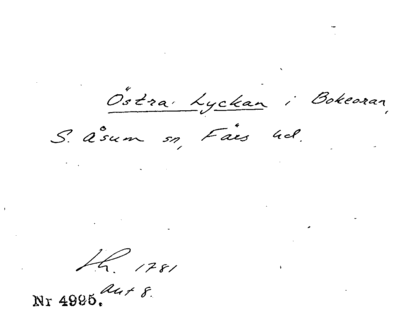 Östra Lyckan i Bokeoran,
S. Åsum sn, Färs hd.
Lh. 1781
akt 8.
Nr 4995.